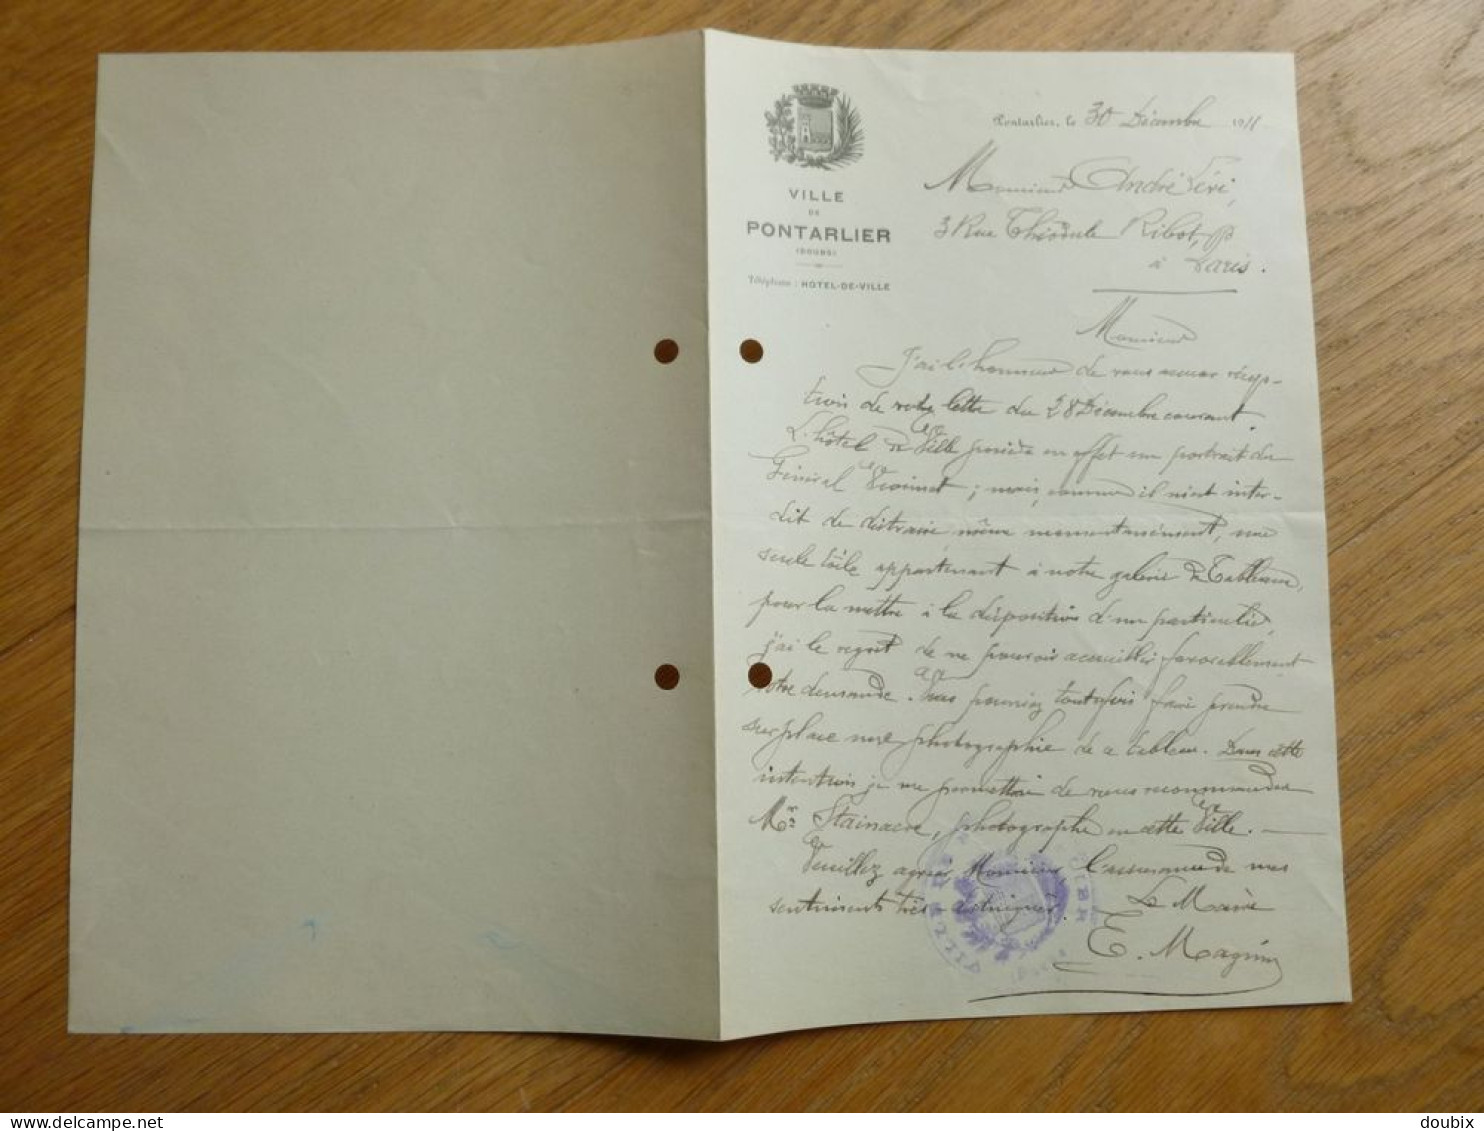 VILLE
DE
PONTARLIER
(DOUBS)
Téléphone : HOTEL-DE-VILLE
Pontarlier, le 30 Décembre 1911
Monsieur André Péri,
3 Rue Théodule Ribot,
à Paris.
Monsieur
J'ai l'honneur de vous accuser récep-
tion de votre lettre du 28 Décembre courant.
L'hôtel de Ville possède en effet un portrait du
Général ; mais, comme il m'est inter-
dit de distraire même momentanément, une
seule toile appartenant à notre galerie de Tableaux,
pour la mettre à la disposition d'un particulier,
j'ai le regret de ne pouvoir accueillir favorablement
votre demande. Vous pourriez toutefois faire prendre
sur place une photographie de ce tableau. Dans cette
intention je me permettrai de vous recommander
Mr Stainacre, photographe en cette Ville. —
Veuillez agréer, Monsieur, l'assurance de mes
sentiments très distingués.
Le Maire
E. Magnin
VILLE DE
delcampe.net
doubix